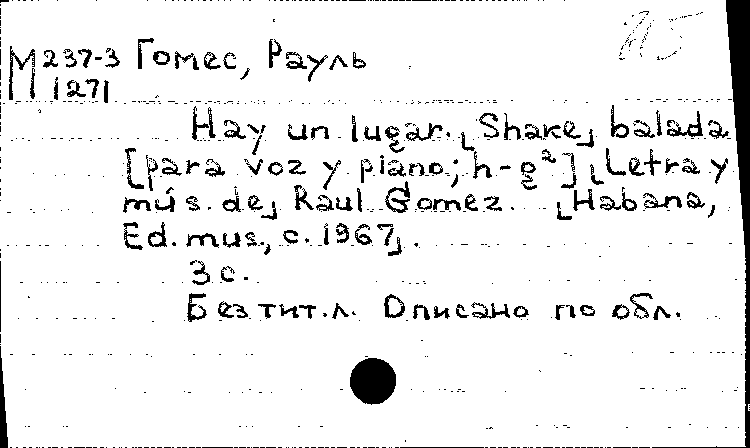 М 237-3 Гомес, Рауль
1271
Hay un lugar. ⌊Shake⌋ balada
[para voz y piano; h-g²] ⌊Letra y
mús. de⌋ Raul Gomez. ⌊Habana,
Ed. mus., c. 1967⌋.
3 с.
Без тит. л. Описано по обл.